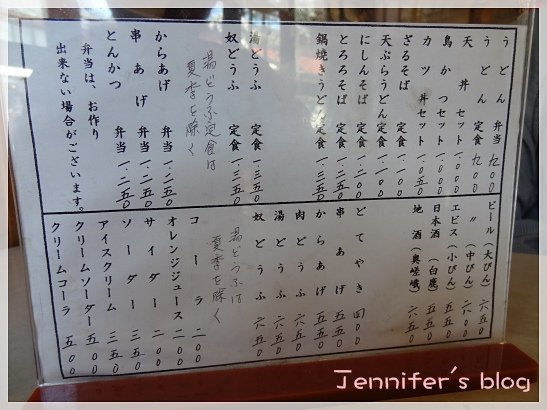 うどん 弁当 九〇〇
うどん 定食 九〇〇
天丼セット 一.〇〇〇
鳥かつ丼セット 一.〇〇〇
カツ丼セット 一.〇五〇
ざるそば 定食 一.〇〇〇
天ぷらうどん定食
にしんそば 定食 一.二〇〇
とろろそば 定食 一.一〇〇
鍋焼きうどん定食 一.三五〇
湯どうふ 定食 一.三五〇
奴どうふ 定食 一.三五〇
湯どうふ定食は
夏季を除く
からあげ 弁当 一.二五〇
串あげ 弁当 一.二五〇
とんかつ 弁当 一.二五〇
弁当は、お作り
出来ない場合がございます。
ビール(大びん) 六五〇
〃(中びん) 六〇〇
エビス(小びん) 五五〇
日本酒(白鹿) 五五〇
地酒(奥嵯峨) 六五〇
どてやき 四〇〇
串あげ 五五〇
からあげ 五五〇
肉どうふ 六五〇
湯どうふ 六五〇
奴どうふ 六五〇
湯どうふは
夏季を除く
コーラ 二〇〇
オレンジジュース 二〇〇
サイダー 二〇〇
ソーダー 三五〇
アイスクリーム 三五〇
クリームソーダー 五〇〇
クリームコーラ 五〇〇
Jennifer's blog